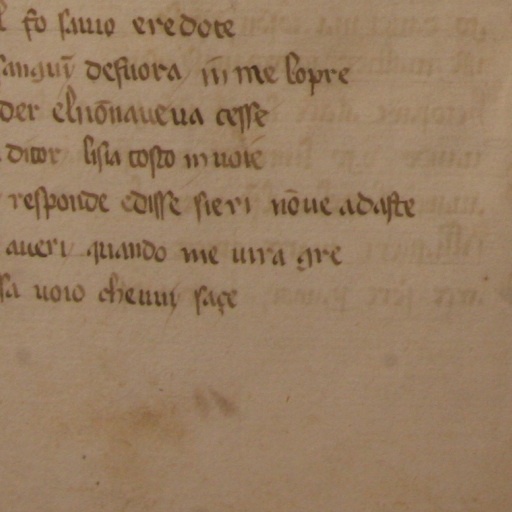 fo sauio e redote
sangui defuora in me lopre
der el nōn aueua cesse
ditor li sia tosto in uoie
responde e disse sieri nō ue adaste
aueri quando me uira gre
sa uoio che uui saçe